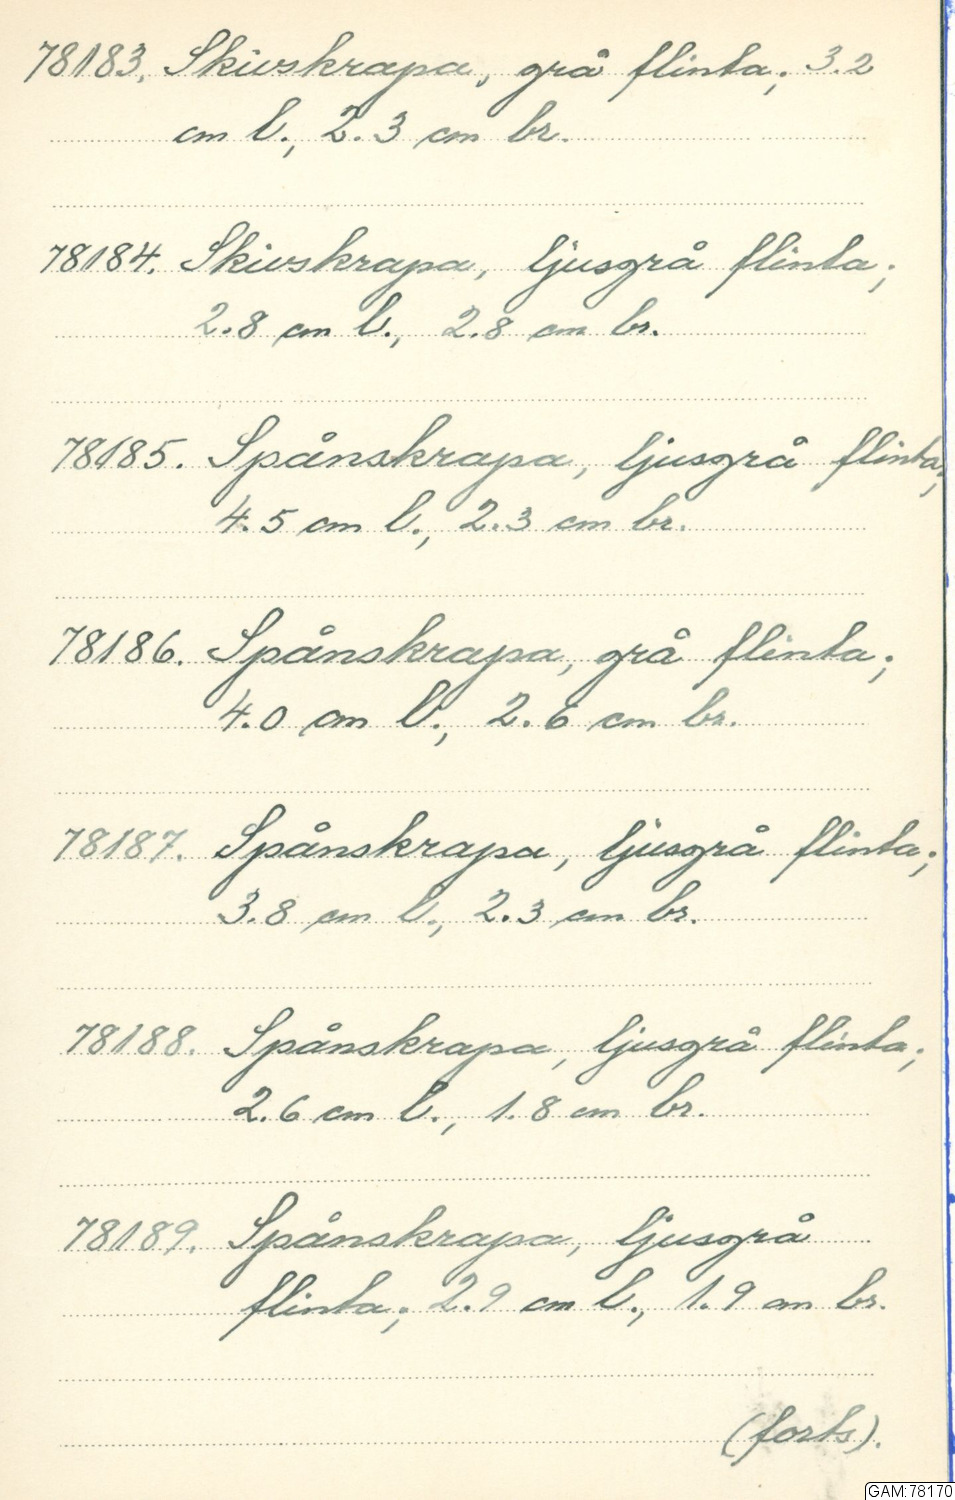 78183. Skivskrapa, grå flinta; 3.2
cm l., 2.3 cm br.
78184. Skivskrapa, ljusgrå flinta;
2.8 cm l., 2.8 cm br.
78185. Spånskrapa, ljusgrå flinta;
4.5 cm l., 2.3 cm br.
78186. Spånskrapa, grå flinta;
4.0 cm l., 2.6 cm br.
78187. Spånskrapa, ljusgrå flinta;
3.8 cm l., 2.3 cm br.
78188. Spånskrapa, ljusgrå flinta;
2.6 cm l., 1.8 cm br.
78189. Spånskrapa, ljusgrå
flinta; 2.9 cm l., 1.9 cm br.
(forts).
GAM:78170